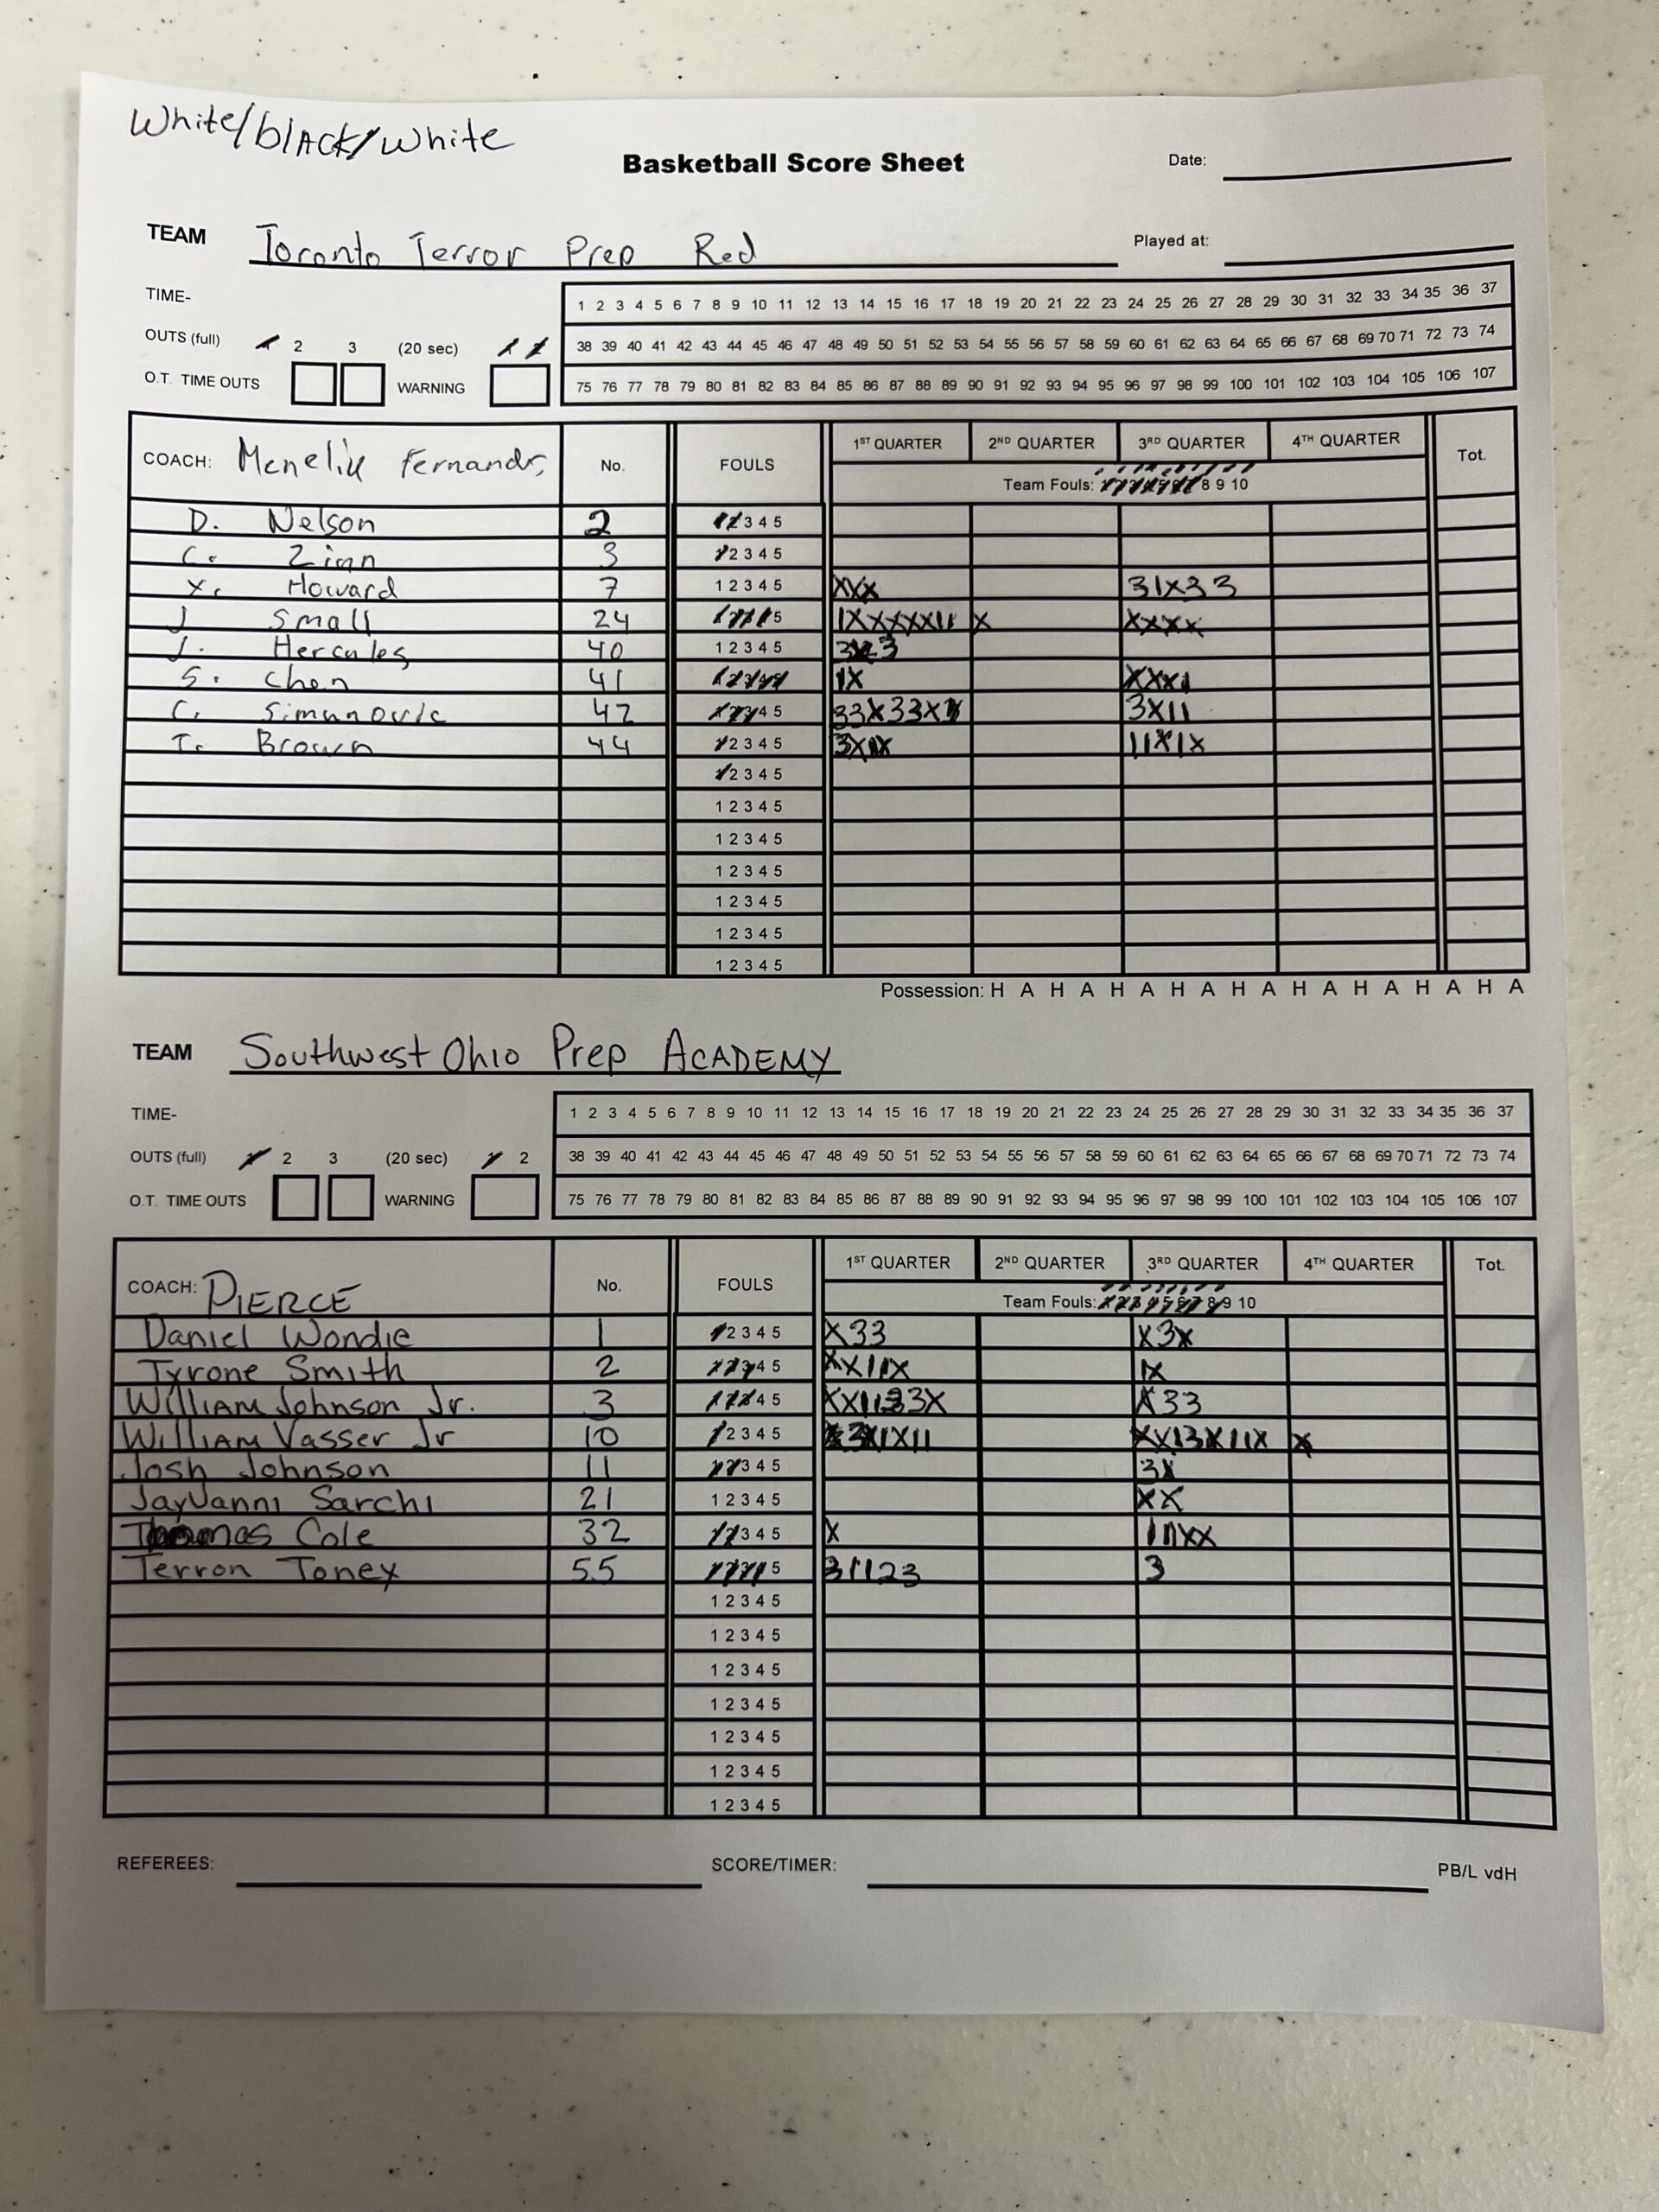 White/black/white
Basketball Score Sheet
Date:
TEAM Toronto Terror Prep Red
Played at:
TIME-
1 2 3 4 5 6 7 8 9 10 11 12 13 14 15 16 17 18 19 20 21 22 23 24 25 26 27 28 29 30 31 32 33 34 35 36 37
OUTS (full) 1 2 3 (20 sec) 1 2
38 39 40 41 42 43 44 45 46 47 48 49 50 51 52 53 54 55 56 57 58 59 60 61 62 63 64 65 66 67 68 69 70 71 72 73 74
O.T. TIME OUTS WARNING
75 76 77 78 79 80 81 82 83 84 85 86 87 88 89 90 91 92 93 94 95 96 97 98 99 100 101 102 103 104 105 106 107
COACH: Menelik Fernandr, No. FOULS 1ST QUARTER 2ND QUARTER 3RD QUARTER 4TH QUARTER Tot.
Team Fouls: 1 2 3 4 5 6 7 8 9 10
D. Nelson 2 1 2 3 4 5
C. Zinn 3 1 2 3 4 5
X. Howard 7 1 2 3 4 5 XXX 31X33
J Small 24 1 2 3 4 5 1XXXXXX11 X XXXX
J. Hercules 40 1 2 3 4 5
S. Chen 41 1 2 3 4 5 1X XXX1
C. Simunovic 42 1 2 3 4 5 33X33X 3X11
T. Brown 44 1 2 3 4 5 11X1X
1 2 3 4 5
1 2 3 4 5
1 2 3 4 5
1 2 3 4 5
1 2 3 4 5
1 2 3 4 5
1 2 3 4 5
Possession: H A H A H A H A H A H A H A H A H A
TEAM Southwest Ohio Prep ACADEMY
TIME-
1 2 3 4 5 6 7 8 9 10 11 12 13 14 15 16 17 18 19 20 21 22 23 24 25 26 27 28 29 30 31 32 33 34 35 36 37
OUTS (full) 1 2 3 (20 sec) 1 2
38 39 40 41 42 43 44 45 46 47 48 49 50 51 52 53 54 55 56 57 58 59 60 61 62 63 64 65 66 67 68 69 70 71 72 73 74
O.T. TIME OUTS WARNING
75 76 77 78 79 80 81 82 83 84 85 86 87 88 89 90 91 92 93 94 95 96 97 98 99 100 101 102 103 104 105 106 107
COACH: PIERCE No. FOULS 1ST QUARTER 2ND QUARTER 3RD QUARTER 4TH QUARTER Tot.
Team Fouls: 1 2 3 4 5 6 7 8 9 10
Daniel Wondie 1 1 2 3 4 5 X33 X3X
Tyrone Smith 2 1 2 3 4 5 XX11X 1X
William Johnson Jr. 3 1 2 3 4 5 XX1133X X33
William Vasser Jr 10 1 2 3 4 5 XX13X11X X
Josh Johnson 11 1 2 3 4 5 3X
JayVanni Sarchi 21 1 2 3 4 5 XX
Thomas Cole 32 1 2 3 4 5 X
Terron Toney 55 1 2 3 4 5 31123 3
1 2 3 4 5
1 2 3 4 5
1 2 3 4 5
1 2 3 4 5
1 2 3 4 5
1 2 3 4 5
1 2 3 4 5
REFEREES: SCORE/TIMER: PB/L vdH